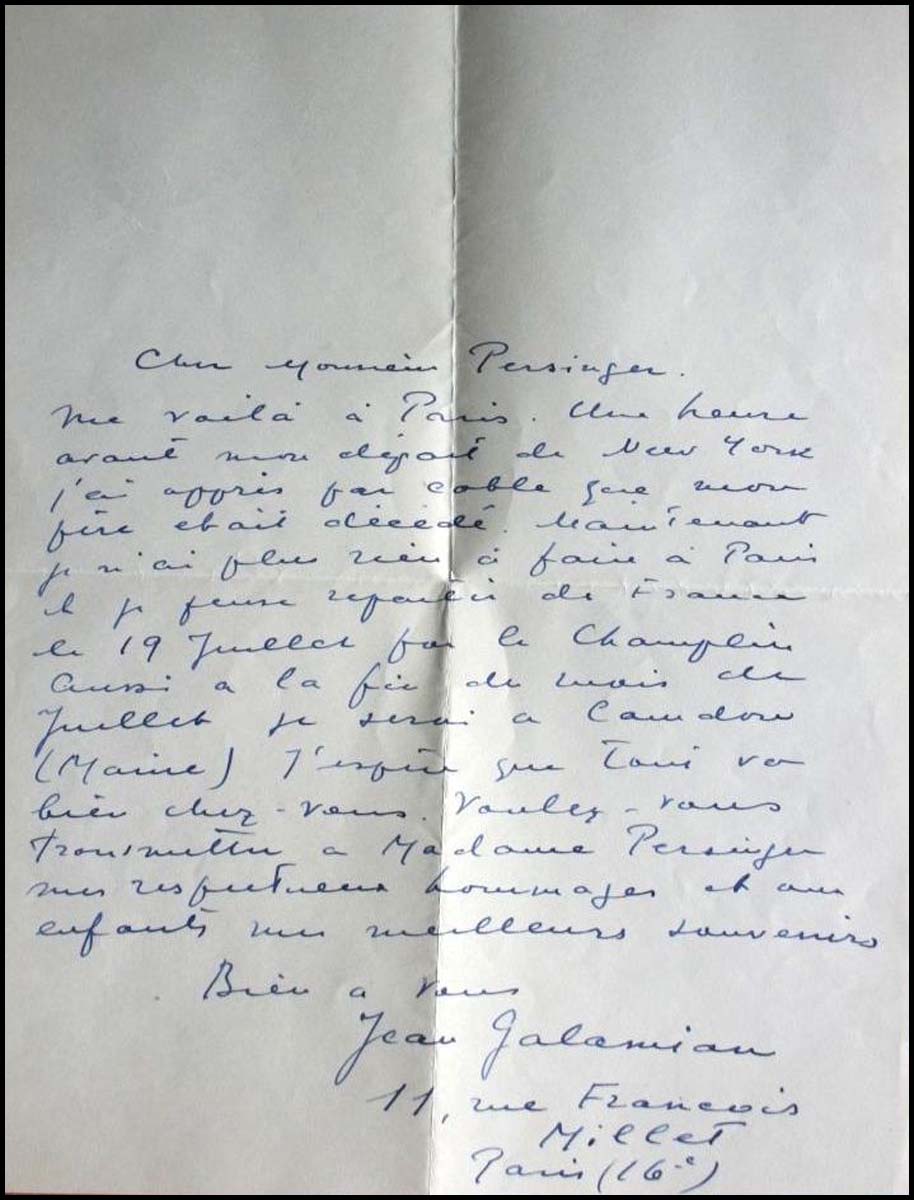 Cher Monsieur Persinger.
Me voilà à Paris. Une heure
avant mon départ de New York
j'ai appris par cable que mon
père etait décédé. Maintenant
je n'ai plus rien à faire à Paris
et je pense repartir de France
le 19 Juillet par le Champlin
Aussi a la fin de mois de
Juillet je serai a Camden
(Maine) J'espère que tout va
bien chez-vous. Voulez-vous
transmettre a Madame Persinger
mes respectueux hommages et aux
enfants mes meilleurs souvenirs
Bien a vous
Jean Galamian
11, rue Francois
Millet
Paris (16e)